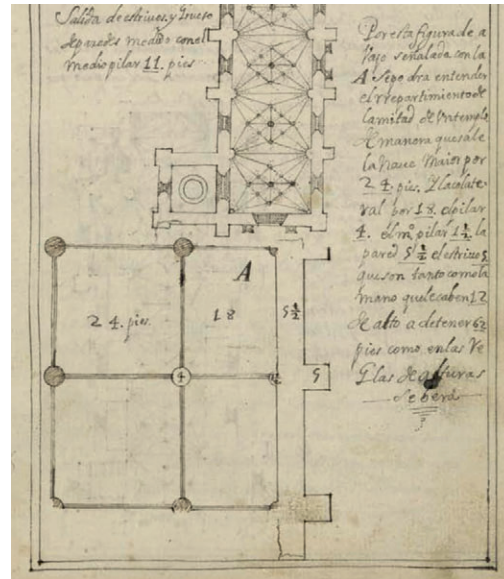 Salida de estrivos, y grueso
de paredes medido con el
medio pilar 11. pies
Por esta figura de a
vajo señalada con la
A se podra entender
el rrepartimiento de
la mitad de un templo
de manera que sale
la nave maior por
24. pies. Y la colate
ral por 18. el pilar
4. el mº pilar 1½ la
pared 5½ el estrivo 5
que son tanto como la
mano que le caben 12
de alto a de tener 62
pies como en las Re
glas de alturas
se berá
A
24. pies.
18
5½
4
5